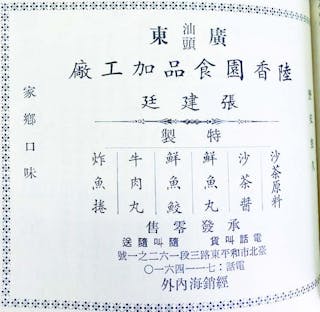 廣汕頭東
陸香園食品加工廠
張建廷
特製
沙茶原料
沙茶醬
鮮魚丸
鮮魚鮫
牛肉丸
炸魚捲
承發零售
電話叫貨 隨叫隨送
臺北市和平東路三段一六二之一號
電話：七一一四六一〇
經銷海內外
家鄉口味